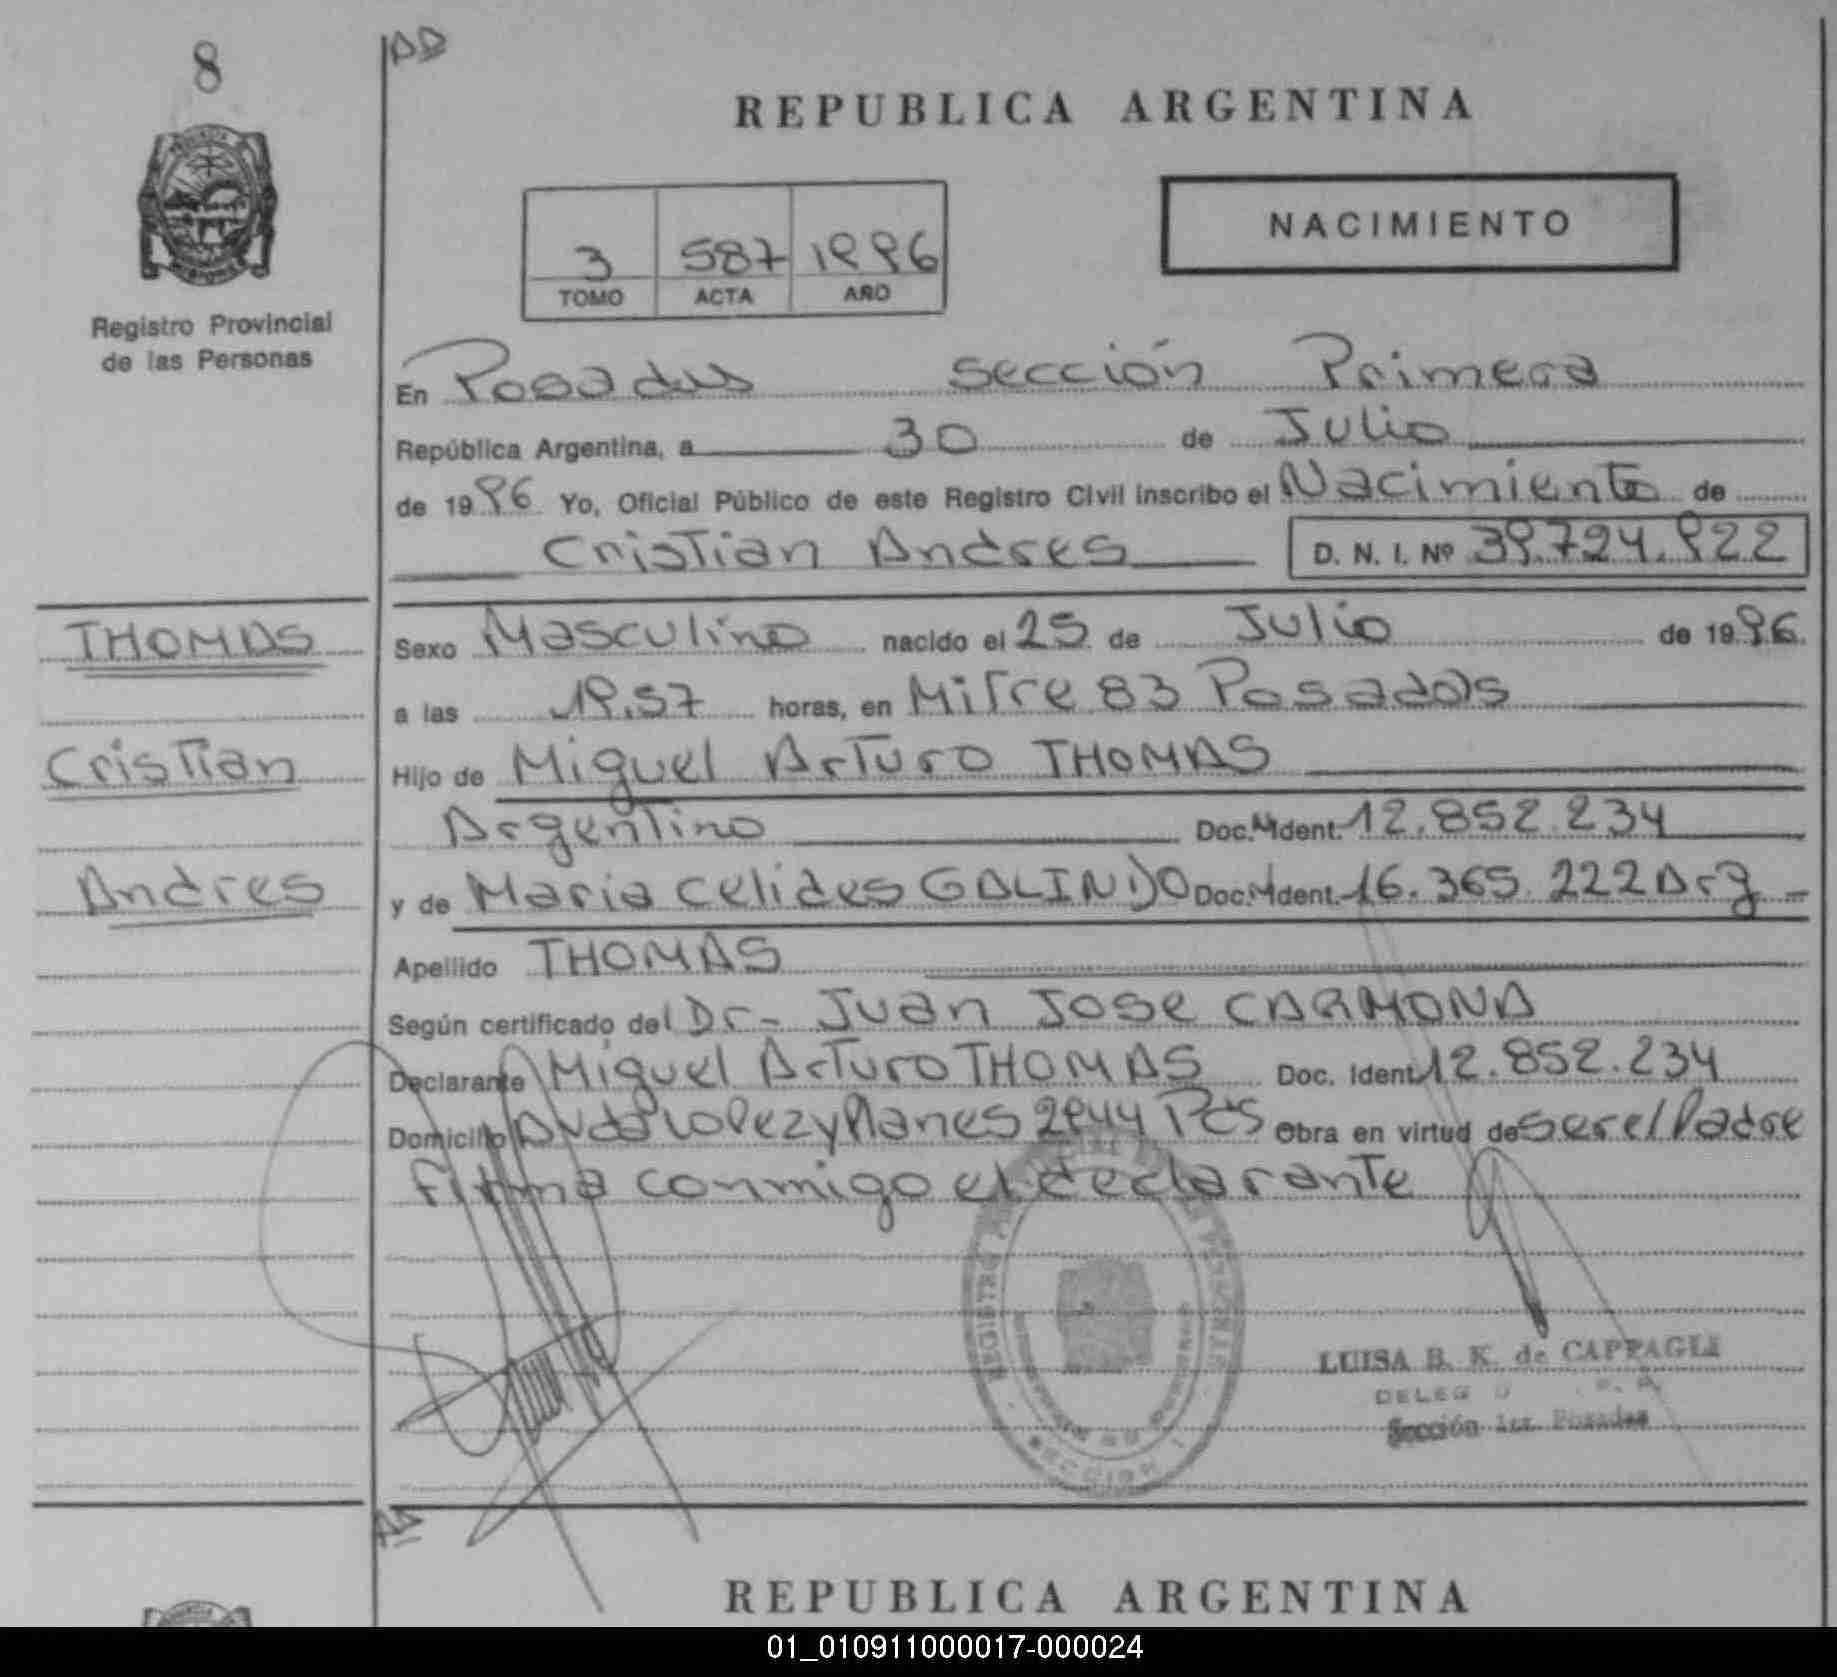 8
AD
REPUBLICA ARGENTINA
NACIMIENTO
3 587 1996
TOMO ACTA AÑO
Registro Provincial
de las Personas
En Posadas sección Primera
República Argentina, a 30 de Julio
de 1996 Yo, Oficial Público de este Registro Civil inscribo el Nacimiento de
Cristian Andres D. N. I. Nº 39.724.922
THOMAS
Cristian
Andres
Sexo Masculino nacido el 25 de Julio de 1996.
a las 19.57 horas, en Mitre 83 Posadas
Hijo de Miguel Arturo THOMAS
Argentino Doc. Ident. 12.852.234
y de Maria Celides GALINDO Doc. Ident. 16.365.222 Arg -
Apellido THOMAS
Según certificado del Dr- Juan Jose CARMONA
Declarante Miguel Arturo THOMAS Doc. Ident. 12.852.234
Domicilio Avda Lopez y Planes 2944 Pdas Obra en virtud de ser el Padre
firma conmigo el declarante
LUISA B. K. de CAPPAGLI
Sección 1ra. Posadas
REPUBLICA ARGENTINA
01_010911000017-000024